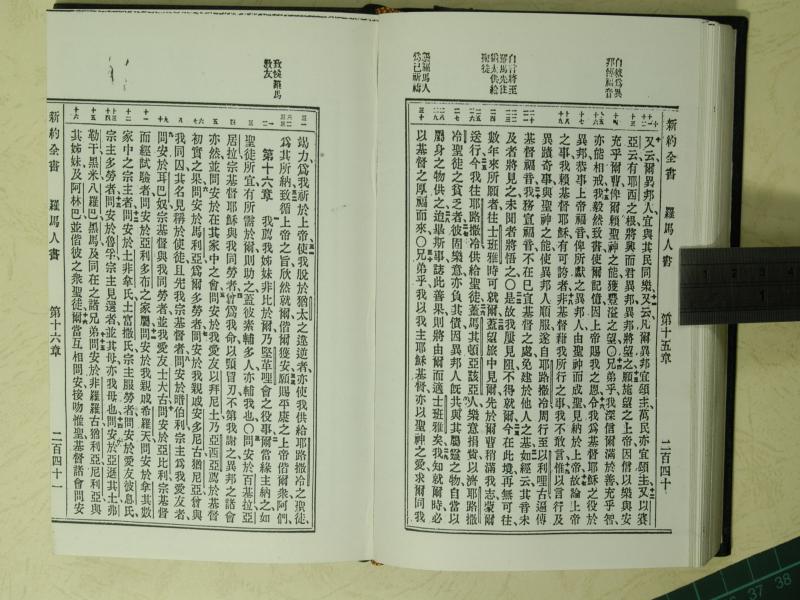 自敘爲異
邦傳福音
自言將至
羅馬先往
猶太供給
聖徒
請羅馬人
爲己祈禱
新約全書　羅馬人書　第十五章　二百四十
又云爾異邦人宜與其民同樂又云凡爾異邦宜頌主萬民亦宜頌主又以賽
亞云有耶西之根將興而君異邦異邦將望之願施望之上帝因信以樂與安
充乎爾曹俾爾賴聖神之能獲豐溢之望〇兄弟乎我深信爾滿於善充乎智
亦能相戒我毅然致書使爾記憶因上帝賜我之恩令我爲基督耶穌之役於
異邦恭事上帝福音俾所獻之異邦人由聖神而成聖見納於上帝故論上帝
之事我賴基督耶穌有可誇者非基督藉我所行之事我不敢言惟以言行及
異蹟奇事與聖神之能使異邦人順服遂自耶路撒冷周行至以利哩古遍傳
基督福音我務宣福音不在已宣基督之處免建於他人之基如經云其音未
及者將見之未聞者將悟之〇是故我屢見阻不得就爾今在此境再無可往
數年來所願者往士班雅時可就爾蓋望旅中見爾先於爾曹稍滿我志蒙爾
送行今我往耶路撒冷供給聖徒蓋馬其頓亞該亞人樂意捐貲以濟耶路撒
冷聖徒之貧乏者彼固樂意亦負其債因異邦人旣共與其屬靈之物自當以
屬身之物供之迨畢斯事誌此善果則將由爾而適士班雅矣我知就爾時必
以基督之厚福而來〇兄弟乎我以我主耶穌基督亦以聖神之愛求爾同我
致候羅馬
教友
竭力爲我祈於上帝使我脫於猶太之違逆者亦使我供給耶路撒冷之聖徒
爲其所納致循上帝之旨欣然就爾偕爾獲安願賜平康之上帝偕爾衆阿們
第十六章　我薦我姊妹非比於爾乃堅革哩會之役事爾當緣主納之如
聖徒所宜有所需於爾則助之蓋彼素輔多人亦輔我也〇問安於百基拉亞
居拉宗基督耶穌與我同勞者曾爲我命以頸冒刃不第我謝之異邦之諸會
亦然並問安於在其家中之會問安於我愛友以拜尼土乃亞西亞屬於基督
初實之果問安於馬利亞爲爾多勞者問安於我親戚安多尼古猶尼亞曾與
我同囚其名見稱於使徒且先我宗基督者問安於暗伯利宗主爲我愛友者
問安於耳巴奴宗基督與我同勞者並我愛友士大古問安於亞比利宗基督
而經試驗者問安於亞利多布之家屬問安於我親戚希羅天問安於拿其數
家中之宗主者問安於土非拿氏土富撒氏宗主服勞者問安於愛友彼息氏
宗主多勞者問安於魯孚宗主見選者並其母亦我母也問安於亞遜其土弗
勒干黑米八羅巴黑馬及同在之諸兄弟問安於非羅羅古猶利亞尼利亞與
其姊妹及阿林巴並偕彼之衆聖徒爾當互相問安接吻惟聖基督諸會問安
新約全書　羅馬人書　第十六章　二百四十一
1
37
38